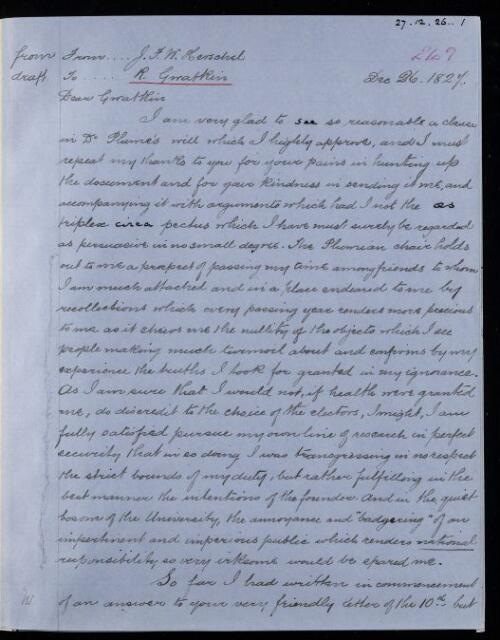 27.12.26..1
from From .... J. F. W. Herschel 247
draft To ..... R. Gwatkin Dec 26. 1827.
Dear Gwatkin
I am very glad to see so reasonable a clause
in Dr Plume's will which I highly approve, and I must
repeat my thanks to you for your pains in hunting up
the document and for your kindness in sending it me, and
accompanying it with arguments which had I not the as
triplex circa pectus which I have must surely be regarded
as persuasive in no small degree. The Plumian chair holds
out to me a prospect of passing my time among friends to whom
I am much attached and in a place endeared to me by
recollections which every passing year renders more precious
to me as it shows me the nullity of the objects which I see
people making much turmoil about and confirms by my
experience the truths I took for granted in my ignorance.
As I am sure that I would not, if health were granted
me, do discredit to the choice of the electors, I might, I am
fully satisfied pursue my own line of research in perfect
security that in so doing I was transgressing in no respect
the strict bounds of my duty, but rather fulfilling in the
best manner the intentions of the founder. And in the quiet
bosom of the University, the annoyance and "badgering" of an
impertinent and imperious public which renders national
responsibility so very irksome would be spared me.
So far I had written in commencement
of an answer to your very friendly letter of the 10th but